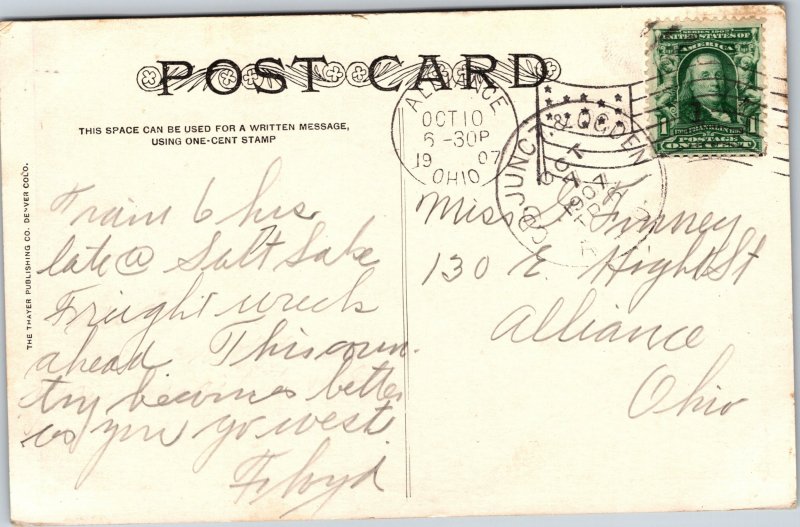 POST CARD
THIS SPACE CAN BE USED FOR A WRITTEN MESSAGE,
USING ONE-CENT STAMP
THE THAYER PUBLISHING CO. DENVER COLO.
Train 6 hrs
late @ Salt Lake
Freight wreck
ahead. This coun-
try becomes better
as you go west.
Floyd
ALLIANCE
OCT 10
6-30P
1907
OHIO
JUNCT. & OGDEN
SERIES 1902
UNITED STATES OF
AMERICA
1
POSTAGE
ONE CENT
Miss Finney
130 E High St
Alliance
Ohio